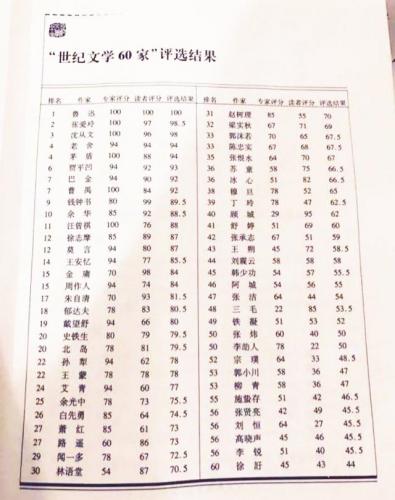 “世纪文学60家”评选结果
排名 作家 专家评分 读者评分 评选结果
1 鲁迅 100 100 100
2 张爱玲 100 97 98.5
3 沈从文 100 96 98
4 老舍 94 94 94
4 茅盾 100 88 94
6 贾平凹 94 92 93
7 巴金 94 90 92
7 曹禺 100 84 92
9 钱钟书 80 99 89.5
10 余华 85 92 88.5
11 汪曾祺 100 76 88
12 徐志摩 85 89 87
12 莫言 94 80 87
14 王安忆 94 77 85.5
15 金庸 70 98 84
15 周作人 94 74 84
17 朱自清 70 93 81.5
18 郁达夫 78 83 80.5
19 戴望舒 94 66 80
20 史铁生 80 79 79.5
20 北岛 78 81 79.5
22 孙犁 94 62 78
22 王蒙 78 78 78
24 艾青 94 60 77
25 余光中 78 73 75.5
26 白先勇 85 64 74.5
27 萧红 85 61 73
27 路遥 60 86 73
29 闻一多 78 67 72.5
30 林语堂 54 87 70.5
排名 作家 专家评分 读者评分 评选结果
31 赵树理 85 55 70
32 梁实秋 67 71 69
33 郭沫若 70 65 67.5
33 陈忠实 67 68 67.5
35 张恨水 64 70 67
36 苏童 58 75 66.5
36 冰心 51 82 66.5
38 穆旦 78 52 65
39 丁玲 78 47 62.5
40 顾城 29 95 62
41 舒婷 51 69 60
42 张承志 67 51 59
43 王朔 45 72 58.5
44 刘震云 58 58 58
45 韩少功 54 57 55.5
46 阿城 54 56 55
47 张洁 64 44 54
48 三毛 22 85 53.5
49 铁凝 51 53 52
50 张炜 60 40 50
50 李劼人 78 22 50
52 宗璞 64 33 48.5
53 郭小川 58 36 47
53 柳青 58 36 47
55 施蛰存 51 42 46.5
56 张贤亮 42 49 45.5
56 刘恒 64 27 45.5
56 高晓声 45 46 45.5
56 李锐 51 40 45.5
60 徐訏 45 43 44